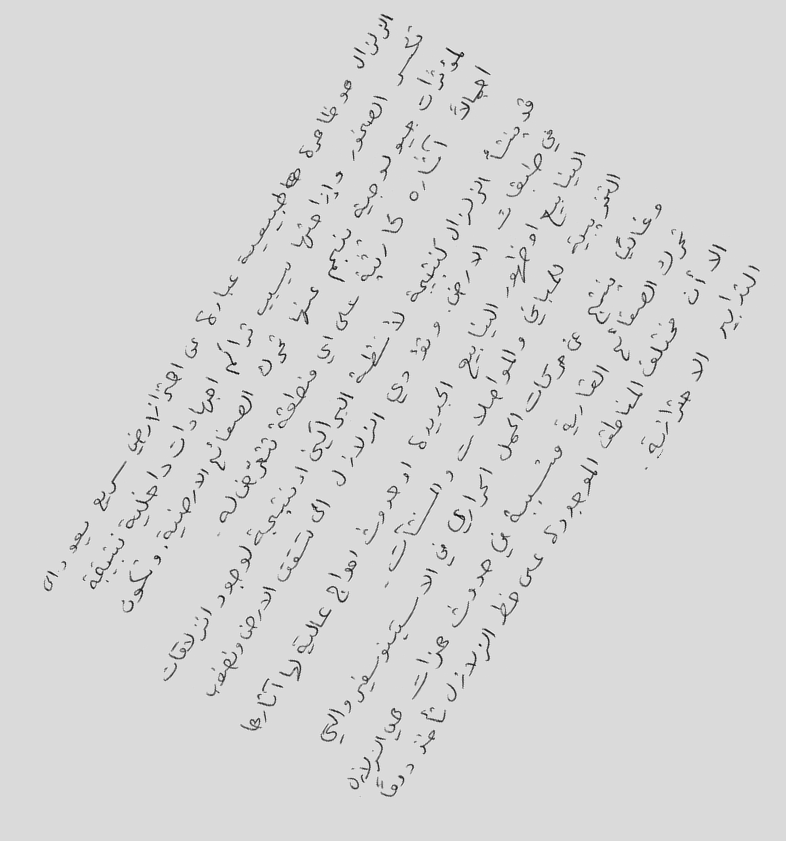 الزلزال هو ظاهرة طبيعية عبارة عن اهتزاز أرضي سريع يعود الى
تكسر الصخور وإزاحتها بسبب تراكم اجهادات داخلية نتيجة
لمؤثرات جيولوجية ينجم عنها تحرك الصفائح الارضية. وتكون
اجمالاً آثاره كارثية على اي منطقة تتعرض له.
قد ينشأ الزلزال كنتيجة لانشطة البراكين او نتيجة لوجود انزلاقات
في طبقات الارض. وتؤدي الزلازل الى تشقق الارض ونضوب
الينابيع او ظهور الينابيع الجديدة او حدوث امواج عالية لها آثارها
التخريبية للمباني والمواصلات والمنشآت.
وغالبًا ينتج عن حركات الحمل الحراري في الاستينوسفير والتي
تحرك الصفائح القارية متسببة في حدوث هزات هي الزلازل
الا أن مختلف المناطق الموجودة على خط الزلازل تأخذ دومًا
التدابير الاحترازية.